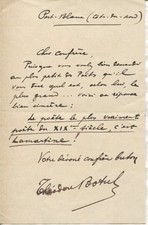 Port-Blanc (Côtes-du-Nord)
Cher confrère,
Puisque vous voulez bien demander
au plus petit des Poètes qu'il
vous dise quel est, selon lui, le
plus grand... voici ma réponse
bien sincère:
Le poète le plus vraiment
poète du XIXe siècle, c'est
Lamartine!
Votre dévoué confrère breton
Théodore Botrel